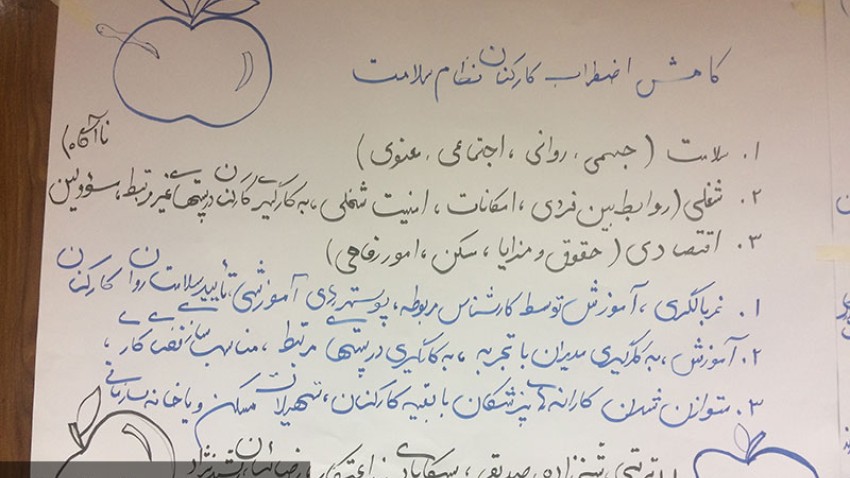 کاهش اضطراب کارکنان نظام سلامت
۱. سلامت (جسمی، روانی، اجتماعی، معنوی)
۲. شغلی (روابط بین فردی، امکانات، امنیت شغلی، به کارگیری کارکنان در پستهای غیر مرتبط، مسؤولین ناآگاه)
۳. اقتصادی (حقوق و مزایا، مسکن، امور رفاهی)
۱. غربالگری، آموزش توسط کارشناس مربوطه، پوسترهای آموزشی، تأیید سلامت روان کارکنان
۲. آموزش، به کارگیری مدیران با تجربه، به کارگیری در پستهای مرتبط، مناسب سازی فضای کار،
۳. متوازن شدن کارانه های پزشکان با بقیه کارکنان، تسهیلات مسکن و یا خانه سازمانی
صدیقی،